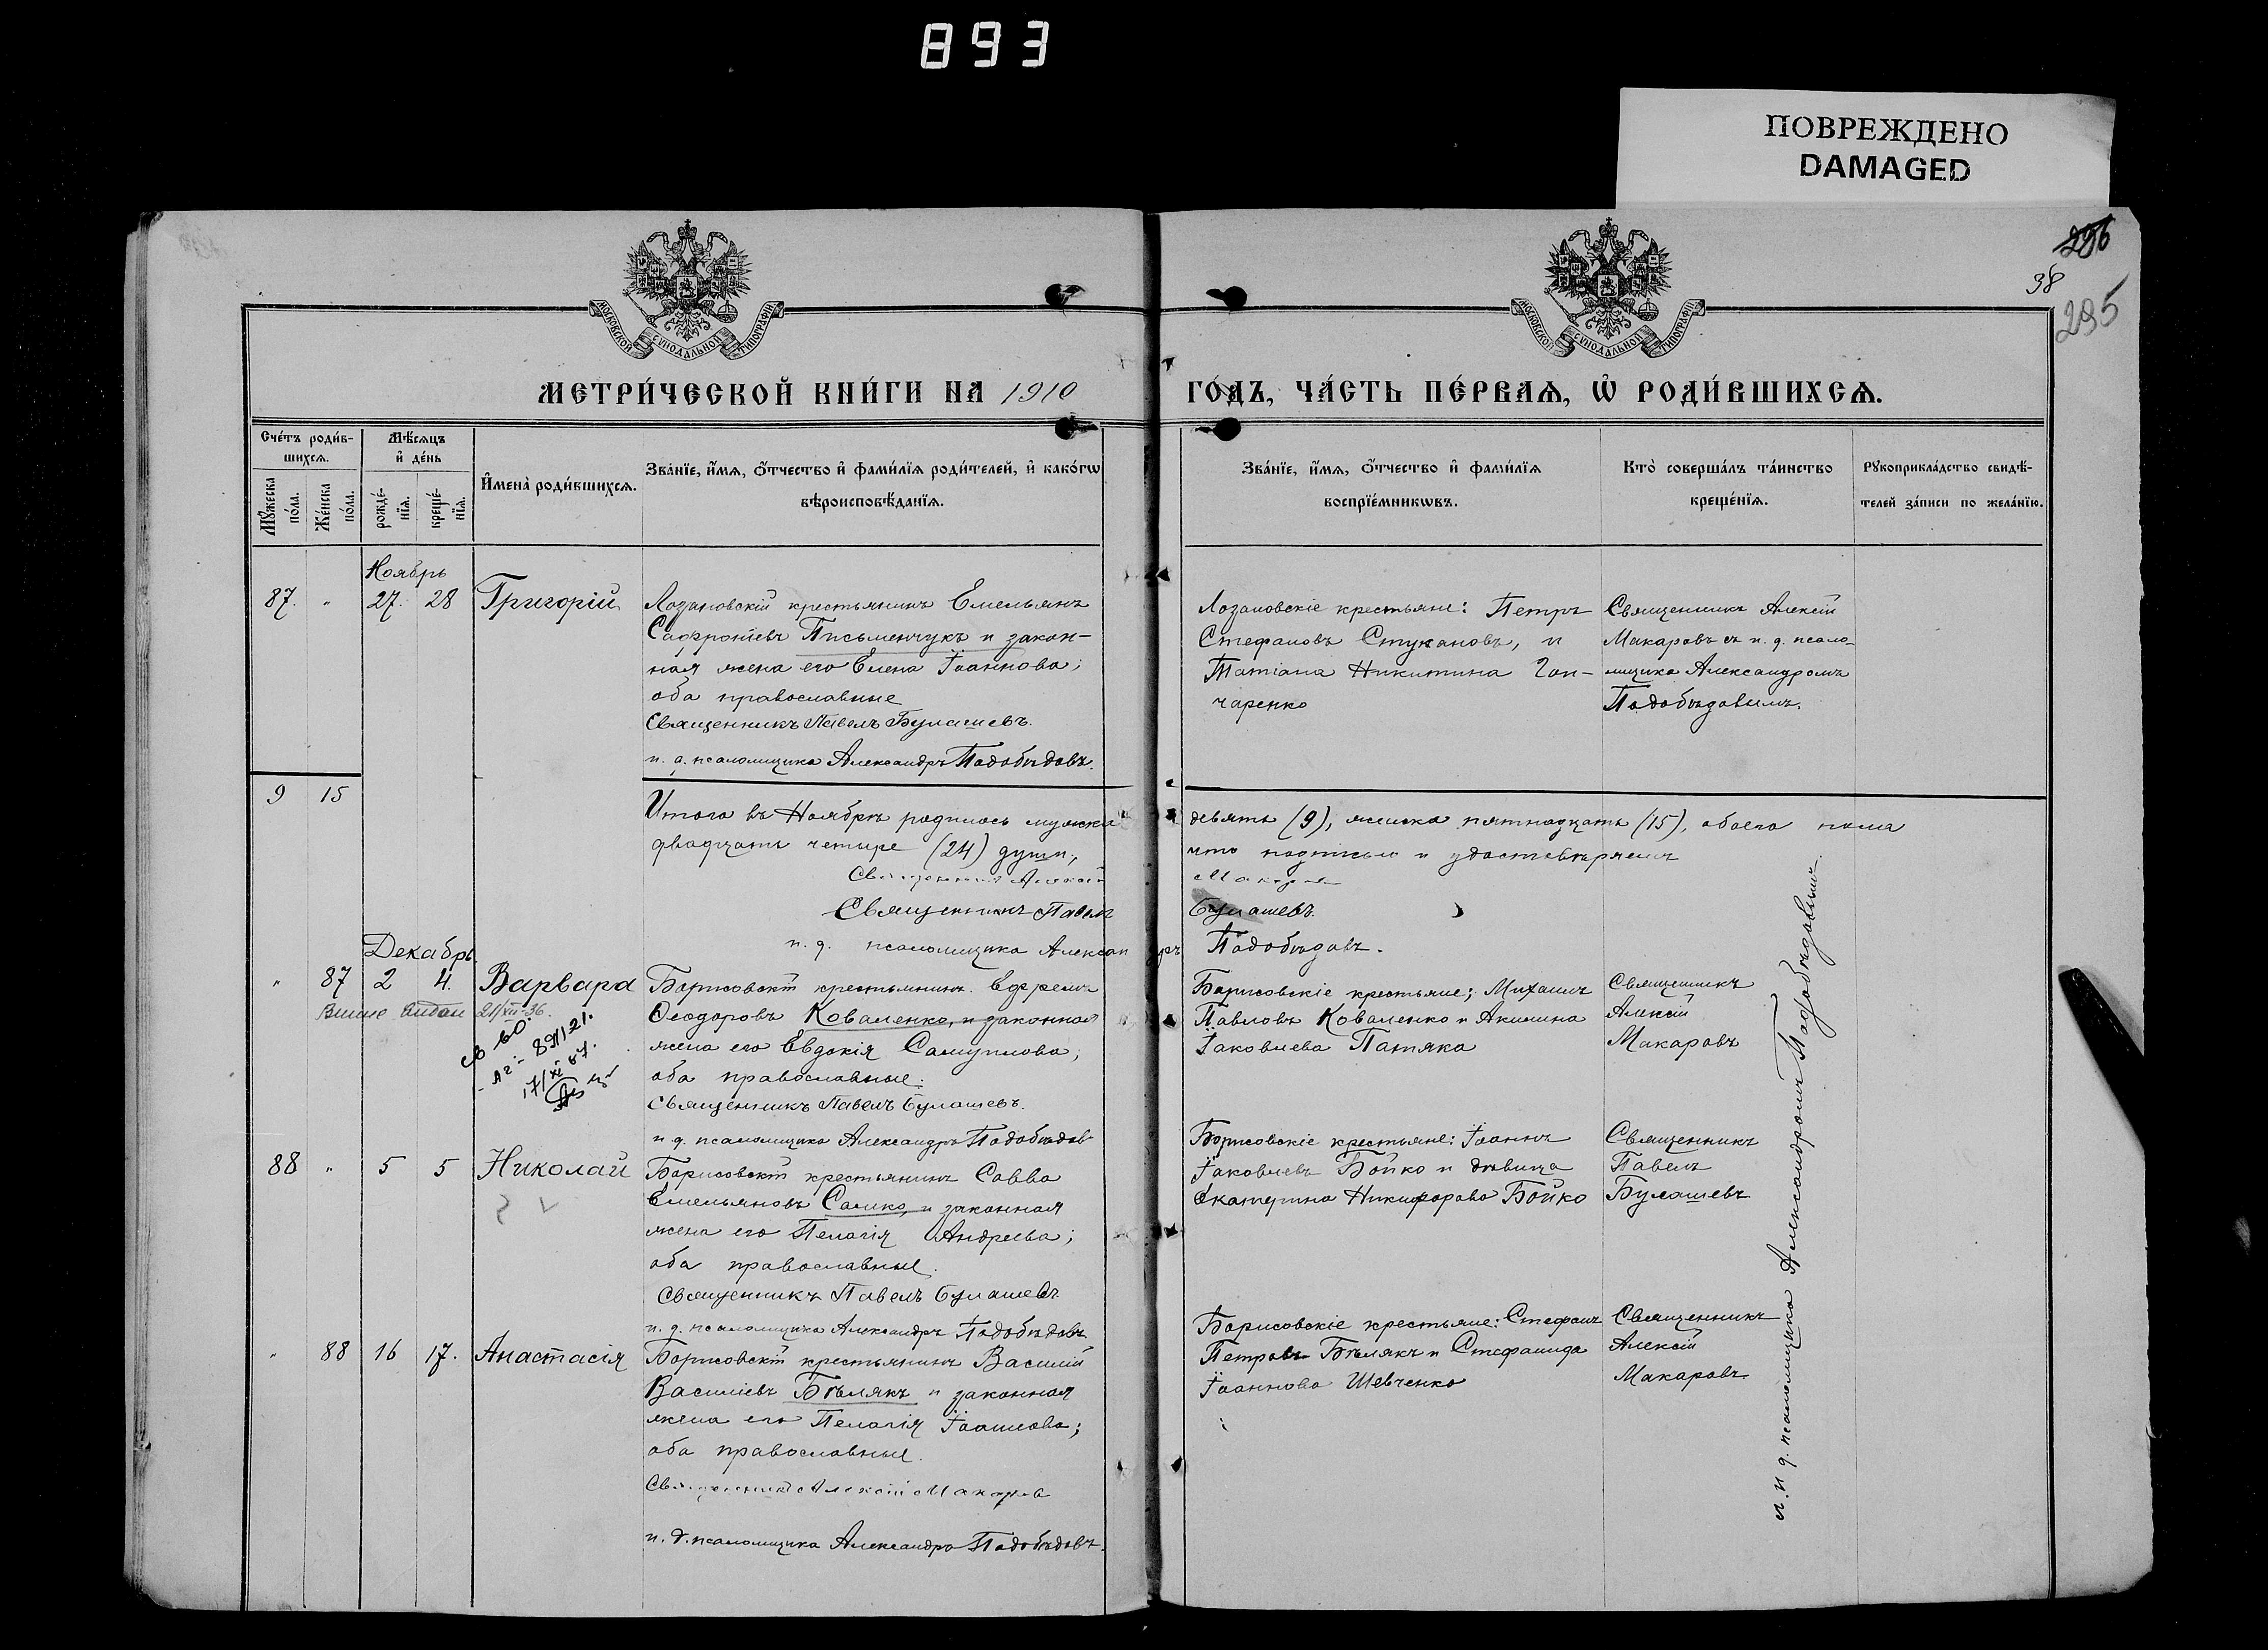 893
ПОВРЕЖДЕНО
DAMAGED
296
38
295
МОСКОВСКОЙ СѴНОДАЛЬНОЙ ТИПОГРАФІИ
МОСКОВСКОЙ СѴНОДАЛЬНОЙ ТИПОГРАФІИ
МЕТРИ́ЧЕСКОЙ КНИ́ГИ НА 1910 ГО́ДЪ, ЧА́СТЬ ПЕ́РВАѦ, Ѡ҆ РОДИ́ВШИХСѦ.
Сче́тъ роди́в-
шихсѧ.
Мꙋ́жеска
по́ла.
Же́нска
по́ла.
Мѣ́сѧцъ
и҆ де́нь
рожде́-
нїѧ.
креще́-
нїѧ.
И҆мена̀ роди́вшихсѧ.
Зва́нїе, и҆́мѧ, ѻ҆́тчество и҆ фами́лїѧ роди́телей, и҆ како́гѡ
вѣроисповѣ́данїѧ.
Зва́нїе, и҆́мѧ, ѻ҆́тчество и҆ фами́лїѧ
воспрїе́мникѡвъ.
Кто̀ соверша́лъ та́инство
креще́нїѧ.
Рꙋкоприкла́дство свидѣ́-
телей за́писи по жела́нїю.
Ноябрь
87. " 27. 28 Григорій
Лозановскій крестьянинъ Емельянъ
Софроніевъ Письменчукъ и закон-
ная жена его Елена Іоаннова;
оба православные
Священникъ Павелъ Булашевъ.
и. д. псаломщика Александръ Подобѣдовъ.
Лозановскіе крестьяне: Петръ
Стефановъ Стукановъ, и
Татіана Никитина Гон-
чаренко
Священникъ Алексій
Макаровъ съ и. д. псало-
мщика Александромъ
Подобѣдовымъ.
9 15
Итого въ Ноябрѣ родилось мужска девять (9), женска пятнадцать (15), обоего пола
двадцать четыре (24) души, что подписью и удостовѣряемъ
Священникъ Алексій Макаровъ
Священникъ Павелъ Булашевъ.
и. д. псаломщика Александръ Подобѣдовъ.
Декабрь
" 87 2 4. Варвара
21/XII-36.
17/XI 67.
Борисовскій крестьянинъ Ефремъ
Ѳеодоровъ Коваленко, и законная
жена его Евдокія Самуилова;
оба православные.
Священникъ Павелъ Булашевъ.
и д. псаломщика Александръ Подобѣдовъ
Борисовскіе крестьяне; Михаилъ
Павловъ Коваленко и Акилина
Іаковлева Патяка
Священникъ
Алексій
Макаровъ
88 " 5 5 Николай
Борисовскій крестьянинъ Савва
Емельяновъ Самко, и законная
жена его Пелагія Андреева;
оба православные.
Священникъ Павелъ Булашевъ
и. д. псаломщика Александръ Подобѣдовъ
Борисовскіе крестьяне: Іоаннъ
Іаковлевъ Бойко и дѣвица
Екатерина Никифорова Бойко
Священникъ
Павелъ
Булашевъ
" 88 16 17. Анастасія
Борисовскій крестьянинъ Василій
Василіевъ Бѣлякъ и законная
жена его Пелагія Іоаннова;
оба православные.
Священникъ Алексій Макаровъ
и. д. псаломщика Александръ Подобѣдовъ.
Борисовскіе крестьяне: Стефанъ
Петровъ Бѣлякъ и Стефанида
Іоаннова Шевченко
Священникъ
Алексій
Макаровъ
и д. псаломщика Александромъ Подобѣдовымъ